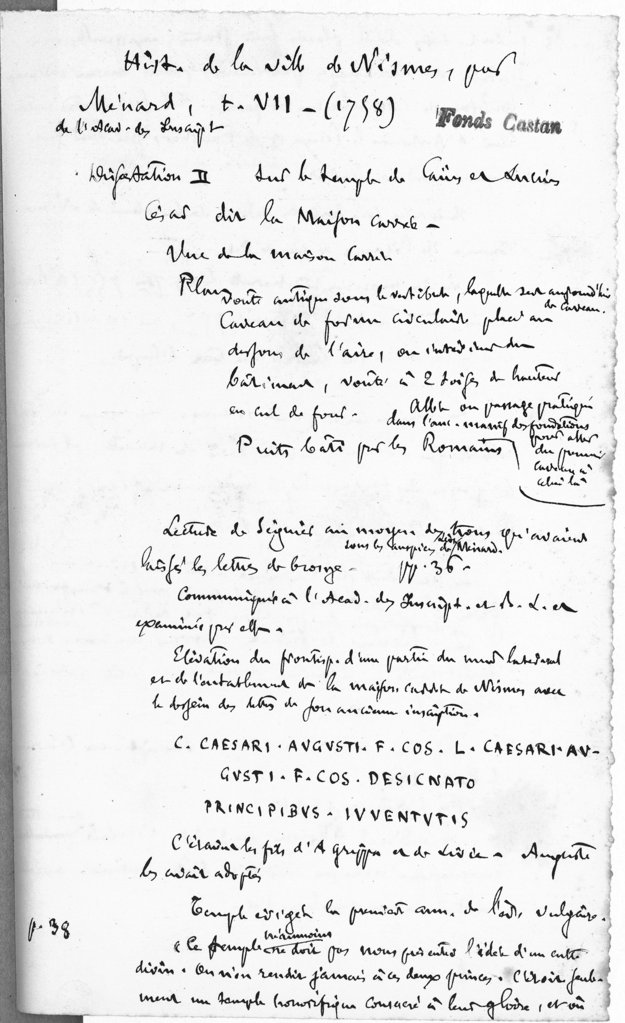 Hist. de la ville de Nismes, par
Ménard, t. VII - (1758)
de l'Acad. des Inscript
Fonds Castan
Dissertation II sur le temple de Caïus et Lucius
César dit la Maison carrée -
Vue de la maison carrée
Plan
voute antique sous le vestibule, laquelle sert aujourd'hui
de caveau.
Caveau de forme circulaire placé au
dessous de l'aire, ou intérieur du
bâtiment, voûté à 2 toises de hauteur
en cul de four.
Allée ou passage pratiqué
dans l'anc. massif des fondations
pour aller
du premier
caveau à
celui là
Puits bâti par les Romains
Lecture de Séguier au moyen des trous qu'avaient
sous les auspices de Ménard.
laissés les lettres de bronze - pp. 36 -
Communiquée à l'Acad. des Inscript. et B. L. et
examinée par elle.
Elévation du frontisp. d'une partie du mur latéral
et de l'entablement de la maison carrée de Nismes avec
le dessein des lettres de son ancienne inscription.
C. CAESARI · AVGVSTI · F · COS · L · CAESARI · AV-
GVSTI · F · COS · DESIGNATO
PRINCIPIBVS · IVVENTVTIS
C'étaient les fils d'Agrippa et de Livie - Auguste
les avait adoptés
Temple érigé la première ann. de l'ère vulgaire.
p. 38
néanmoins
« Ce temple ne doit pas nous présenter l'idée d'un culte
divin. On n'en rendit jamais à ces deux princes. C'étoit seule-
ment un temple honorifique consacré à leur gloire, et où